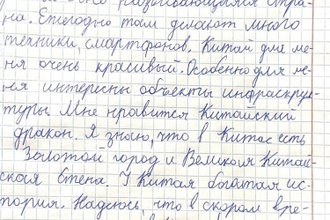 развивающаяся стра-
на. Ежегодно там делают много
техники, смартфонов. Китай для ме-
ня очень красивый. Особенно для ме-
ня интересны объекты инфраструк-
туры. Мне нравится Китайский
дракон. Я знаю, что в Китае есть
Золотой город и Великая Китай-
ская Стена. У Китая богатая ис-
тория. Надеюсь, что в скором вре-